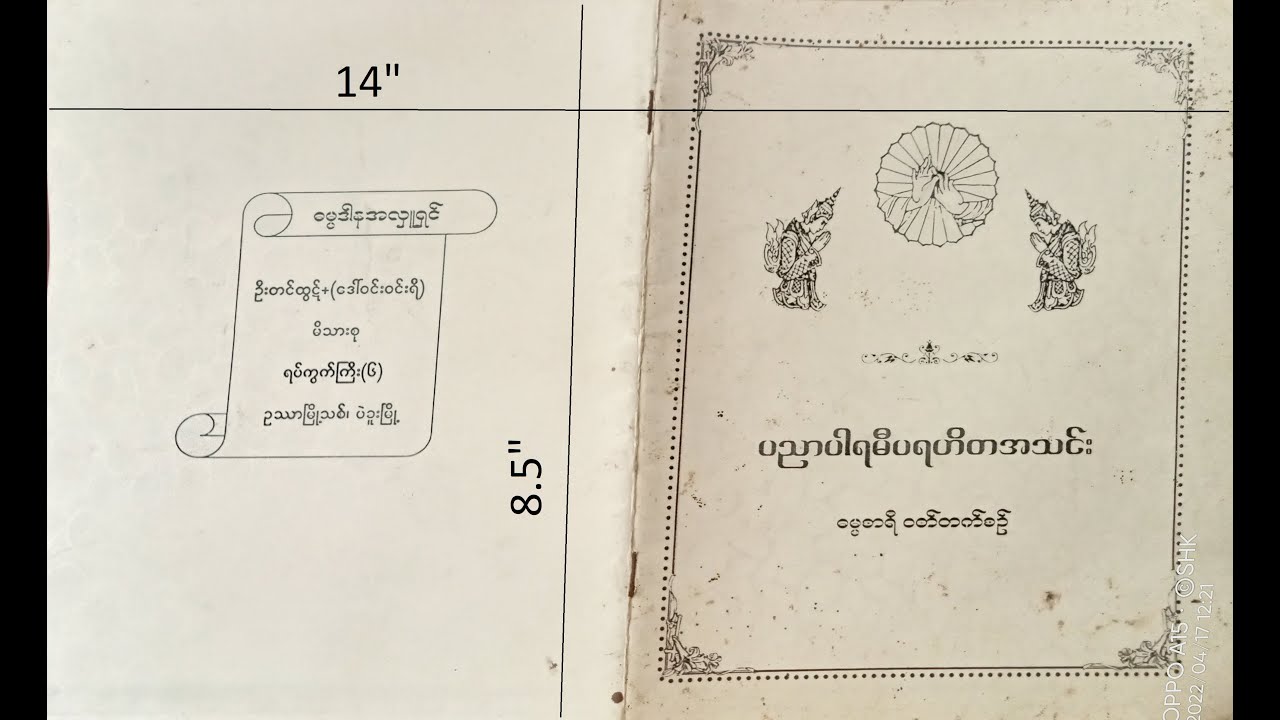 14"
ဓမ္မဒါနအလှူရှင်
ဦးတင်ထွဋ်+(ဒေါ်ဝင်းဝင်းရီ)
မိသားစု
ရပ်ကွက်ကြီး(၆)
ဥဿာမြို့သစ်၊ ပဲခူးမြို့
8.5"
ပညာပါရမီပရဟိတအသင်း
ဓမ္မစာရီ ဝတ်တက်စဉ်
OPPO A15 ©SHK
2022. 04. 17 12:21